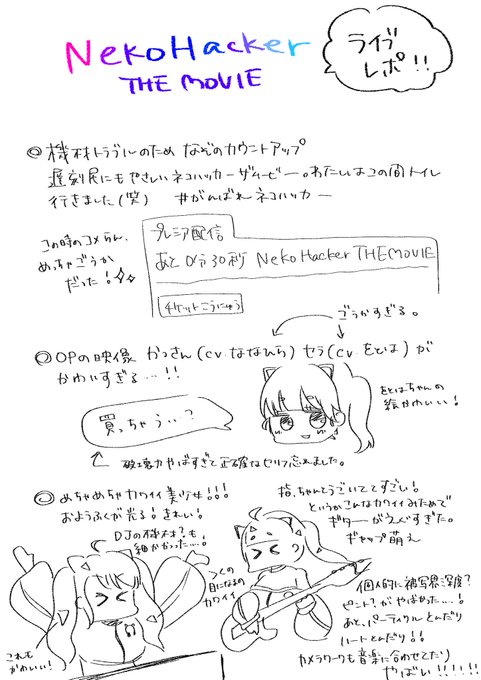 NekoHacker
THE MOVIE
ライブ
レポ!!
◎機材トラブルのため なぞのカウントアップ
遅刻民にもやさしいネコハッカーザムービー。わたしはこの間トイレ
行きました(笑) #がんばれネコハッカー
この時のコメらん、
めっちゃごうか
だった!
プレミア配信
あと0分30秒 NekoHacker THE MOVIE
チケットこうにゅう
ごうかすぎる。
◎OPの映像 かっさん(cv.ななひら) セラ(cv.をとは)が
かわいすぎる…!!
買っちゃうぅ?
をとはちゃんの
絵かわいい!
破壊力やばすぎて正確なセリフ忘れました。
◎めちゃめちゃカワイイ美少女!!!
おようふくが光る!きれい!
DJの機材?も
細かかった…!
><の
目になるの
カワイイ
これも
かわいい!
指、ちゃんとうごいててすごい!
というかこんなカワイイみためで
ギターがえぐすぎた。
ギャップ萌え
個人的に被写界深度?
ピント?がやばかった…!
あと、パーティクルとんだり
ハートとんだり!!
カメラワークも音楽に合わせてたり
やばい!!!!!